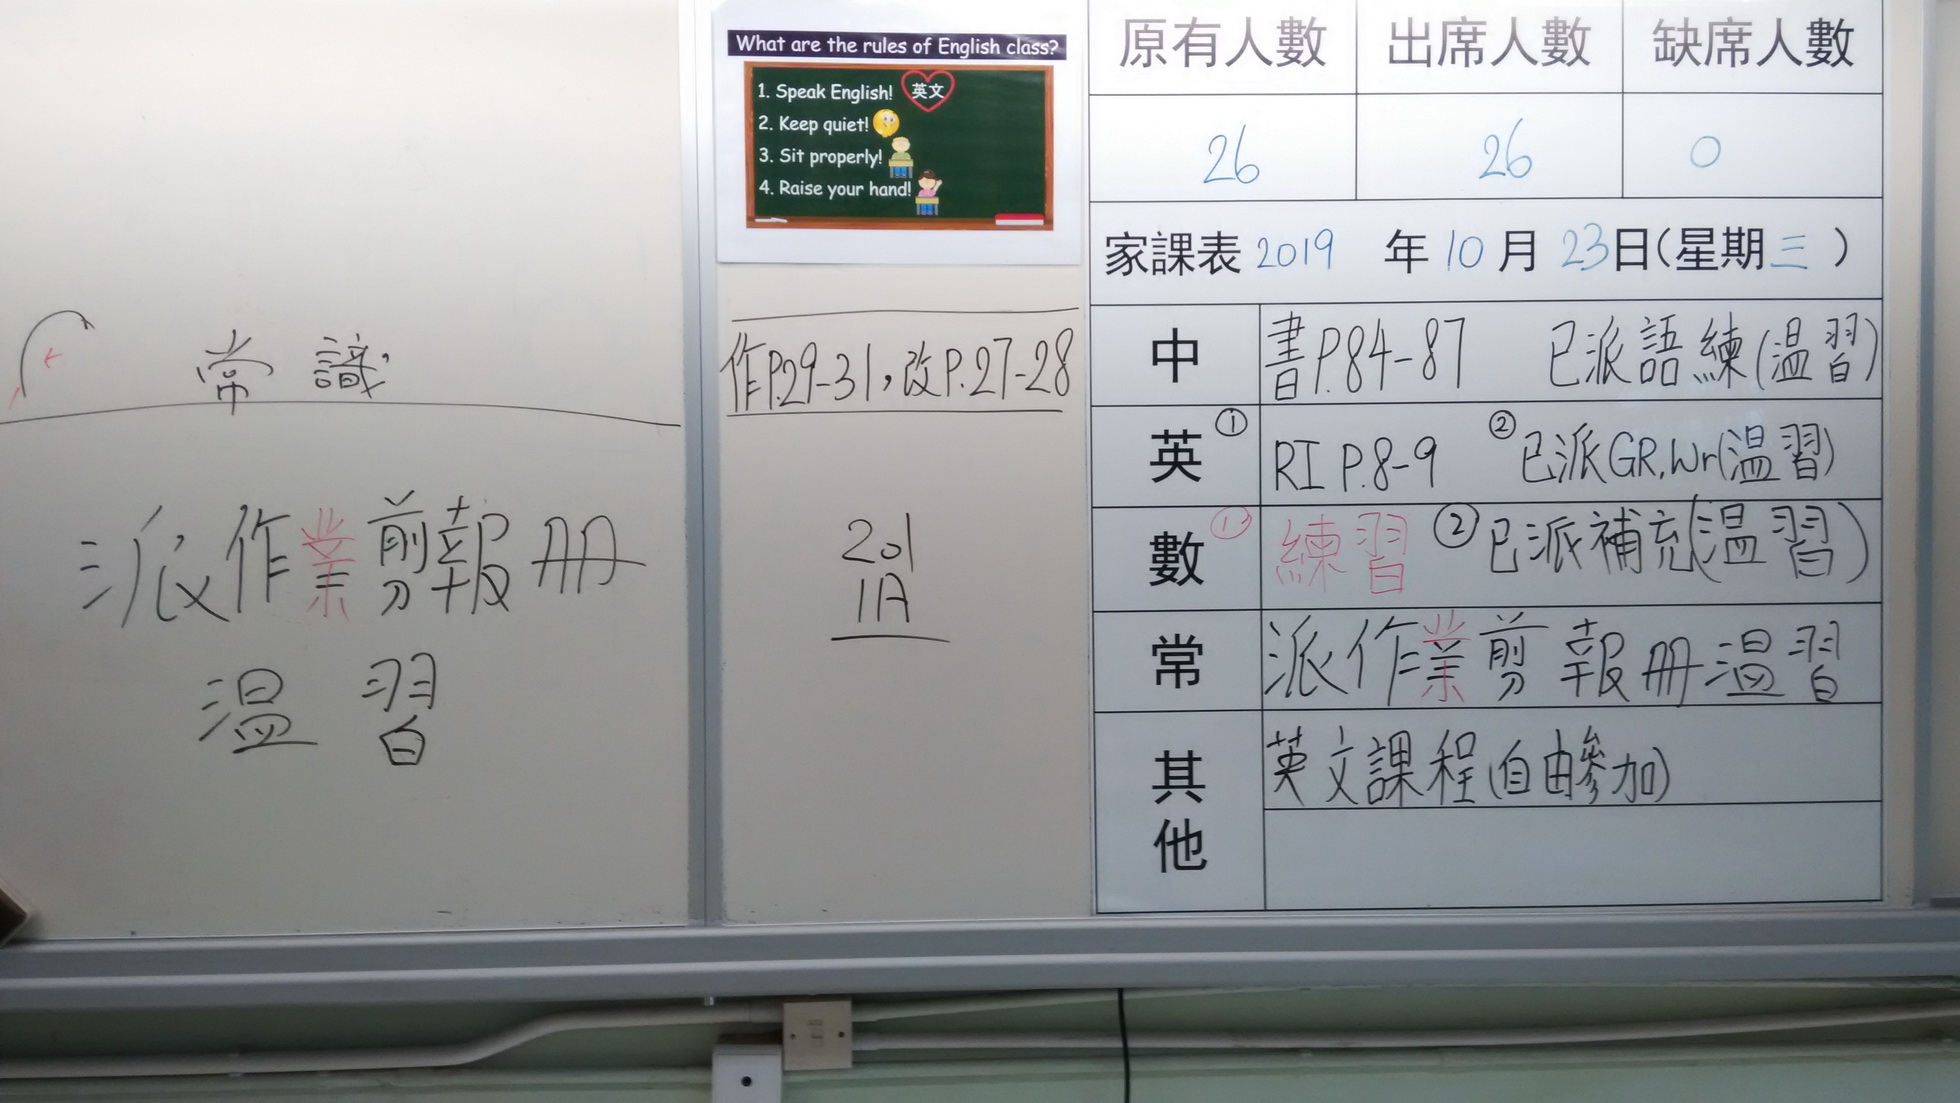 常識
派作業剪報冊
温習
What are the rules of English class?
1. Speak English! 英文
2. Keep quiet!
3. Sit properly!
4. Raise your hand!
作P.29-31,改P.27-28
201
1A
原有人數 出席人數 缺席人數
26 26 0
家課表 2019 年 10 月 23 日(星期三)
中 書P.84-87 已派語練(温習)
英 ① RI P.8-9 ② 已派GR,Wr(温習)
數 ① 練習 ② 已派補充(温習)
常 派作業剪報冊温習
其他 英文課程(自由參加)